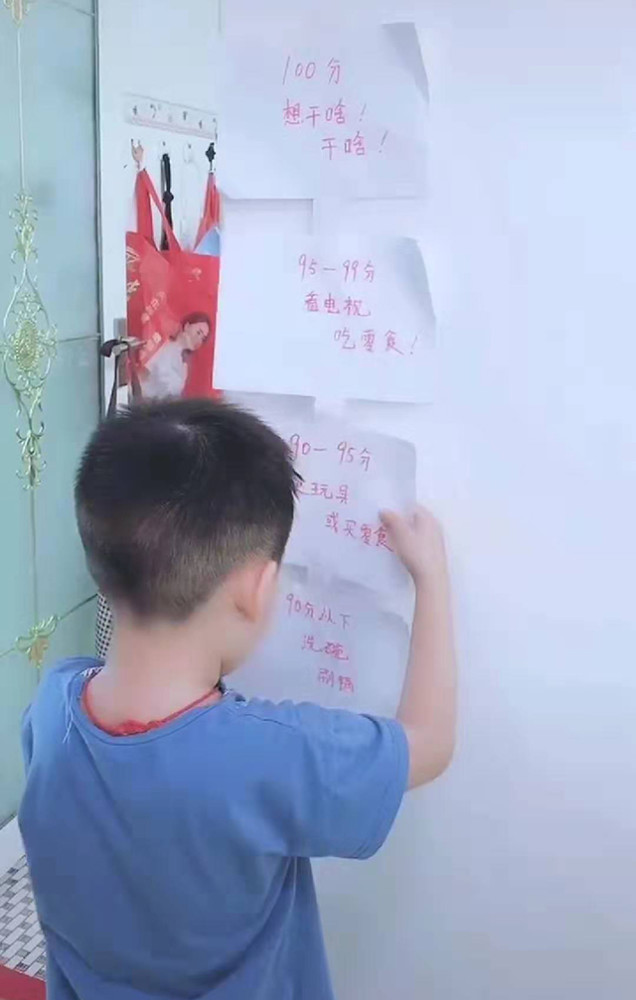 100分
想干啥！
干啥！
95－99分
看电视
吃零食！
90－95分
玩具
或买零食
90分以下
洗碗
刷锅